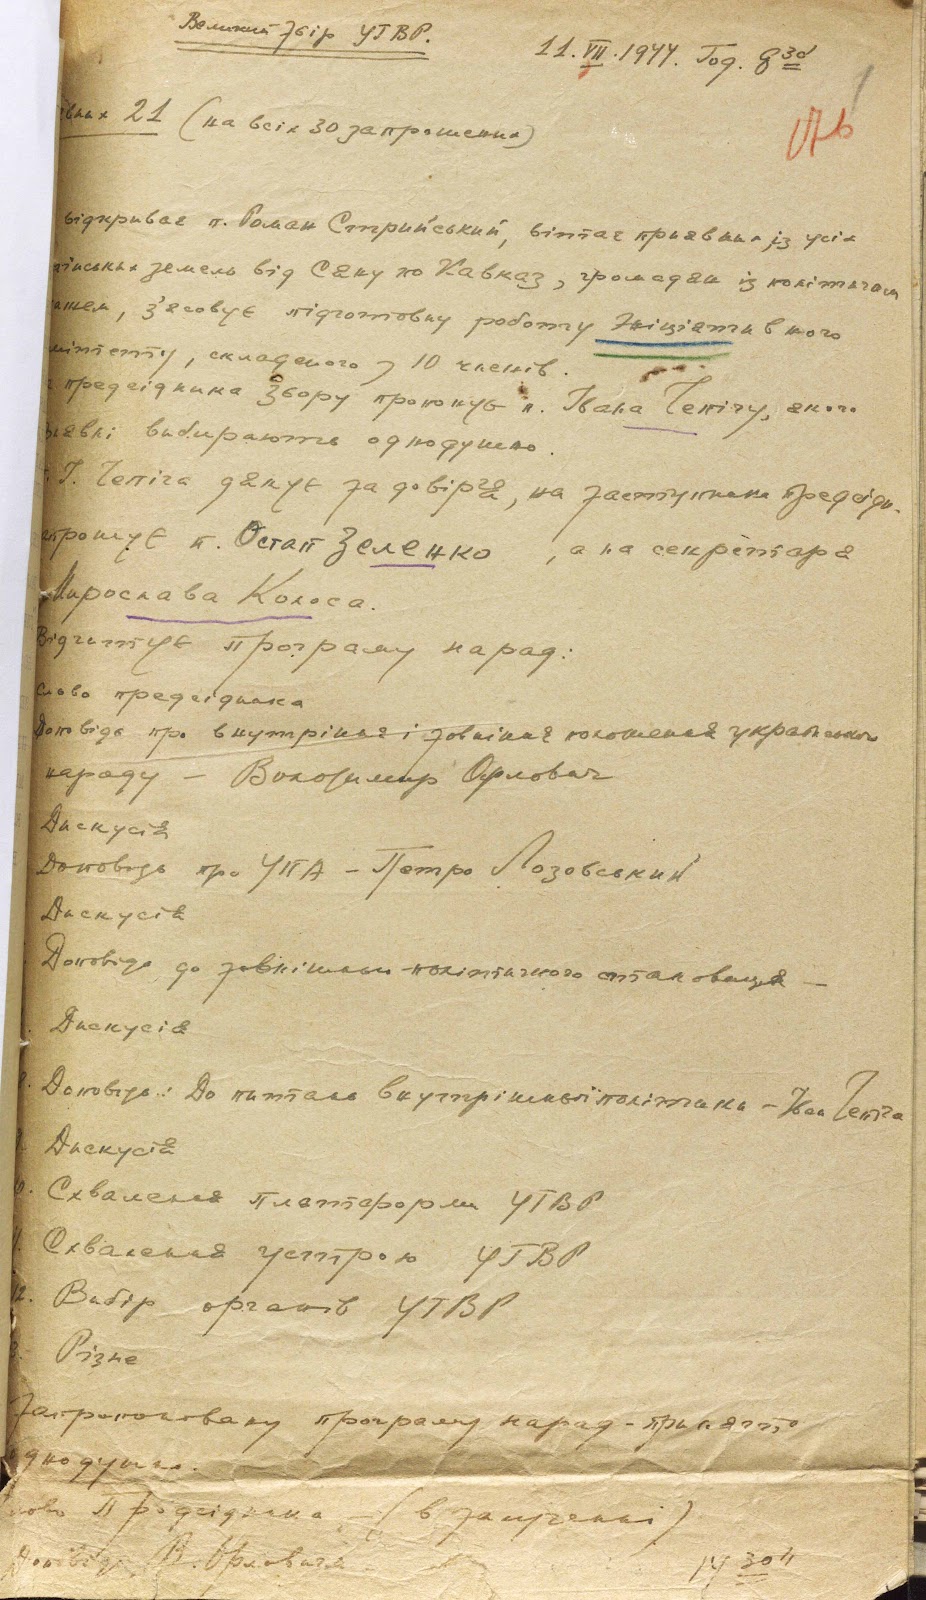 Великий Збір УГВР.
11.VII.1944. Год. 8 30
21 (на всіх 30 запрошених)
відкриває п. Роман Стрийський, вітає приявних із усіх
земель від Сяну по Кавказ, громадян із політичним
з'ясовує підготовну роботу Ініціятивного
складеного з 10 членів.
предсідника Збору пропонує п. Івана Чепігу, якого
вибирають однодушно.
І. Чепіга дякує за довірря, на заступника предсідн.
п. Остап Зеленко, а на секретаря
Мирослава Колоса.
Відчитує програму нарад:
слово предсідника
Доповідь про внутрішнє і зовнішнє положення українського
народу – Володимир Орлович
Дискусія
Доповідь про УПА – Петро Лозовський
Дискусія
Доповідь до зовнішньо-політичного становища –
Дискусія
Доповідь: До питань внутрішньої політики – Іван Чепіга
Дискусія
Схвалення платформи УГВР
Схвалення устрою УГВР
12. Вибір органів УГВР
Різне
Запропоновану програму нарад – принято
однодушно.
Предсідника – (в залученні)
Доповідь В. Орловича 14 30